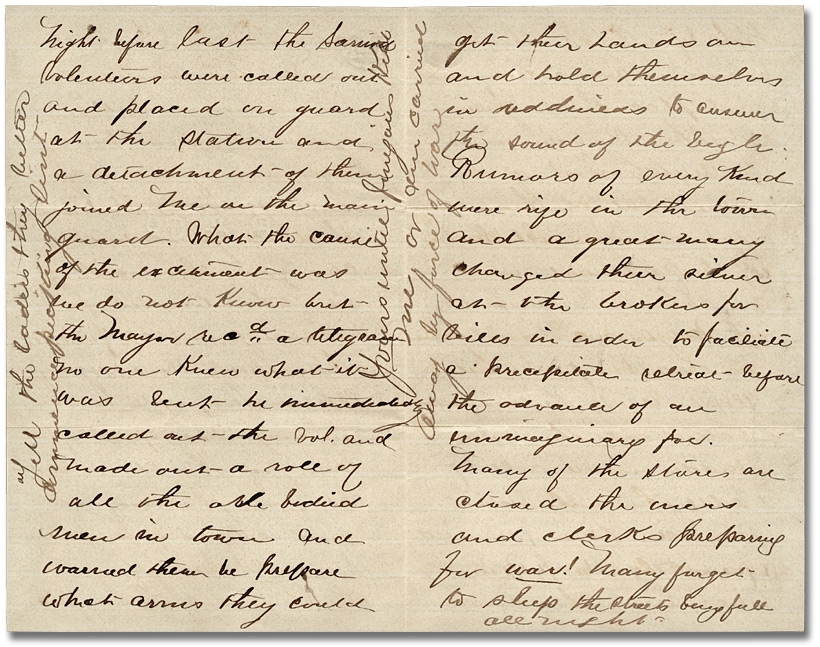 night before last the Sarnia
volenteers were called out
and placed on guard
at the station and
a detachment of them
joined me on the main
guard. What the cause
of the excitment was
we do not know but
the Mayor recd a telegram
no one knew what it
was but he immediately
called out the Vol. and
made out a roll of
all the able bodied
men in town and
warned them be prepare
what arms they could
get their hands on
and hold themselves
in reddiness to answer
the sound of the bugle.
Rumors of every kind
were rife in the town
and a great many
changed their silver
at the brokers for
bills in order to faciliate
a precipitate retreat before
the advance of an
immaginary foe.
Many of the stores are
closed the owners
and clerks preparing
for war! Many forget
to sleep the streets being full
all night
Tell the ladies they better
commence picking lint
Yours until
fine or
carried
away by force of war